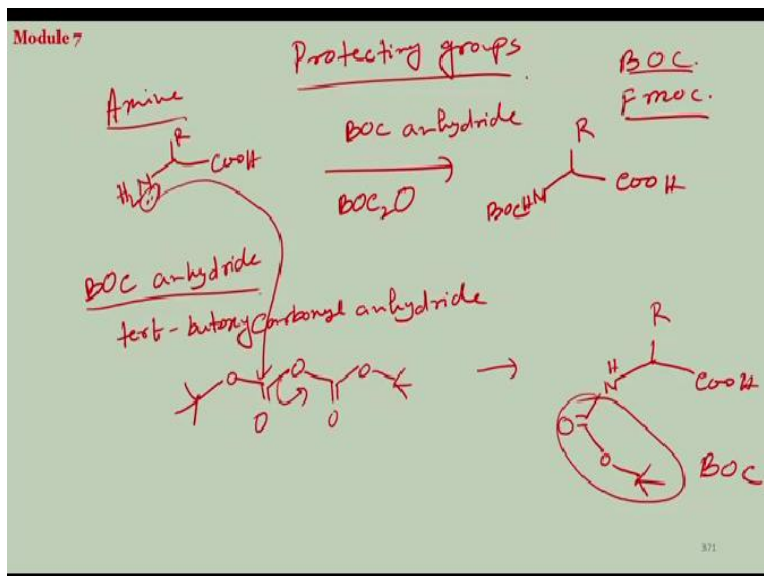 Module 7
Protecting groups
BOC.
Fmoc.
Amine
R
H2N
COOH
BOC anhydride
BOC2O
R
BOCHN
COOH
BOC anhydride
tert-butoxycarbonyl anhydride
O
O
O
O
O
R
H
N
COOH
O
O
BOC
371